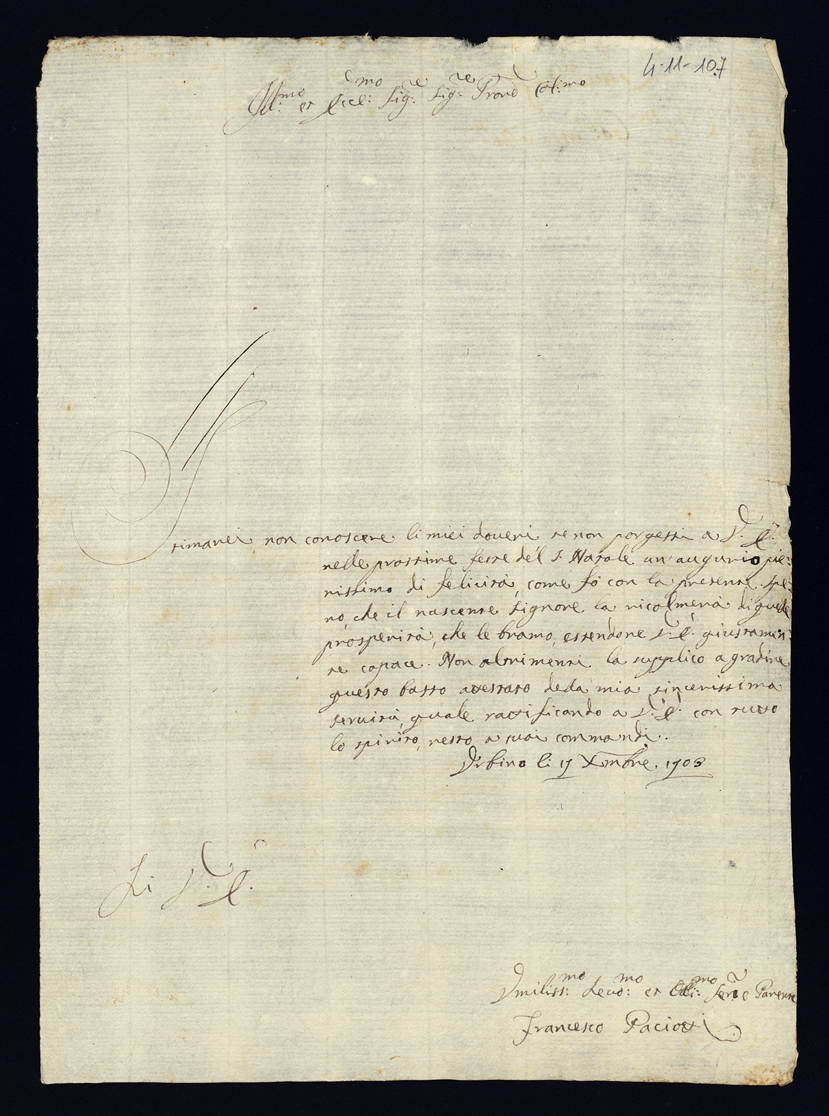 4-11-107
Ill:mo et Ecc:mo Sig:re Sig:re Pron̄e Col:mo
Stimarei non conoscere li miei doveri se non porgessi a V. E.
nelle prossime feste del S. Natale un'augurio pie-
nissimo di felicità, come fò con la presente. Spe-
ro, che il nascente Signore la ricolmerà di quelle
prosperità, che le bramo, essendone V. E. giustamen-
te capace. Non altrimenti la supplico a gradire
questo basso attestato della mia sincerissima
servitù, quale ratificando a V. E. con tutto
lo spirito, resto a suoi commandi.
Vrbino li 17 Xmbre. 1703
Di V. E.
Vmiliss:mo Devo:mo et Obli:mo Ser:e e Parente
Francesco Paciotti